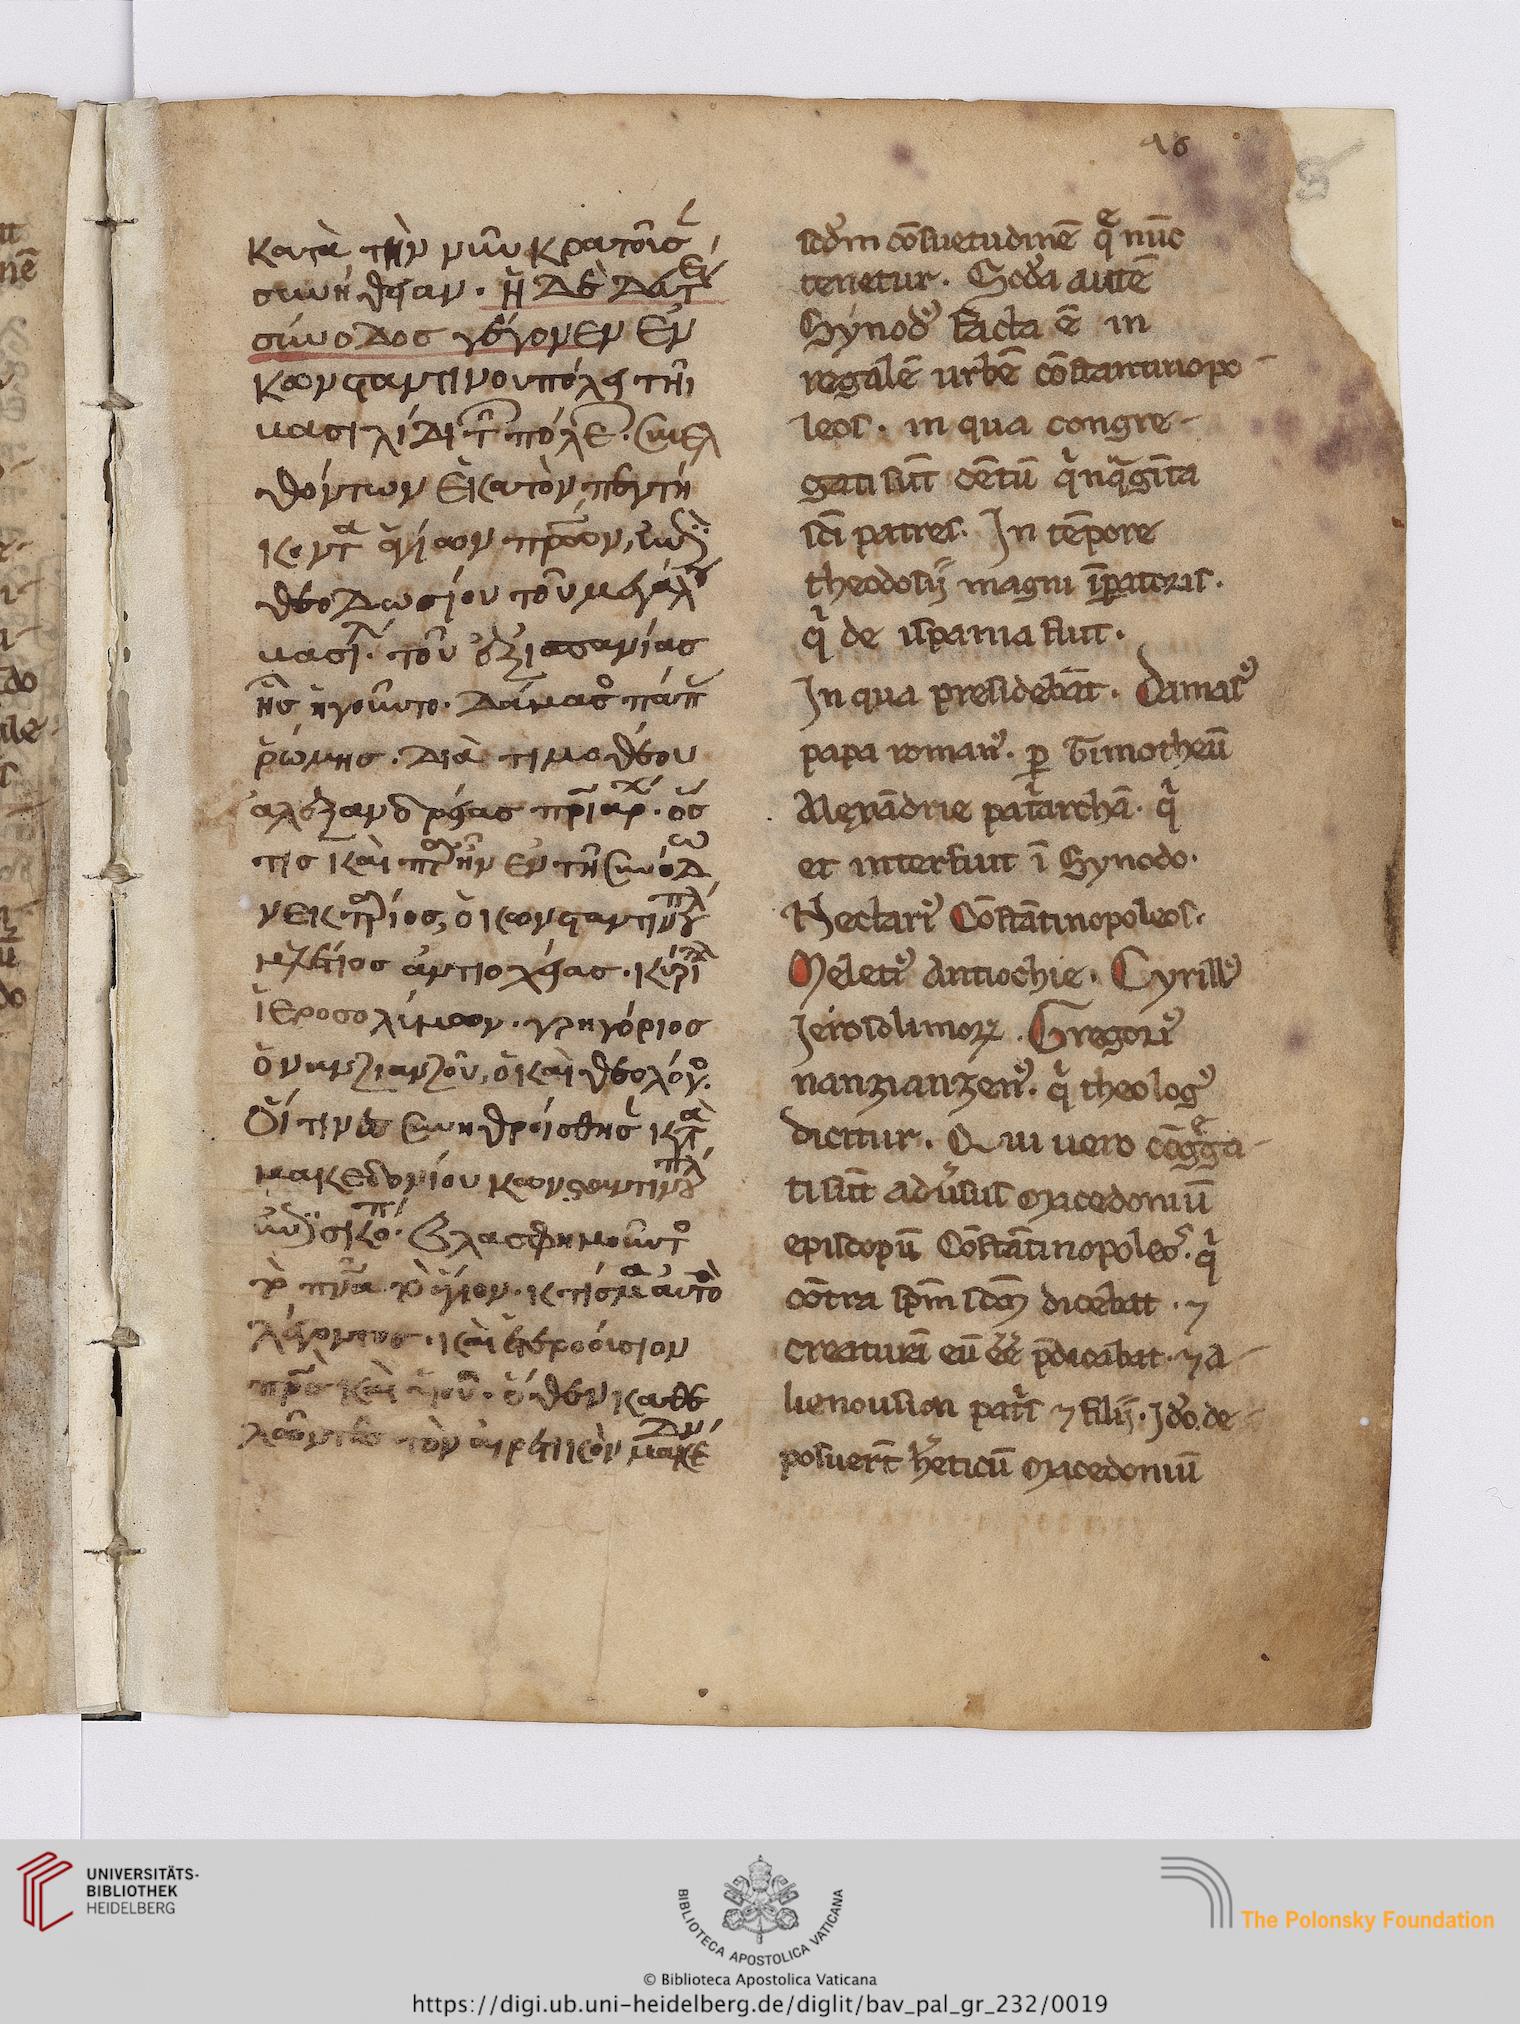 16
8
κατὰ τὴν νῦν κρατοῦς
συνήθειαν. ἡ δὲ δευτ
σύνοδος γέγονεν ἐν
κωνσταντινουπόλει τῆι
βασιλίδι τ πόλε. συνελ
θόντων ἑκατὸν πεντή
κοντα ἁγίων πρων,
θεοδωσίου τοῦ μεγάλου
βασι. τοῦ ἐξ ισπανίας
ἧς ἡγοῦντο. δάμασος πάπ
ῥώμης. διὰ τιμοθέου
ἀλεξανδρείας πριαρχ. ὅς
τις καὶ ἦν ἐν τῆ συνόδω
νεκτάριος, ὁ κωνσταντινουπλ
μελέτιος ἀντιοχείας. κύριλ
ἱεροσολύμων. γρηγόριος
ὁ ναζιανζοῦ, ὁ καὶ θεολόγος.
οἵτινες συνηθροίσθησ κατὰ
μακεδονίου κωνσταντινουπλ
ἐπισκό. βλασφημοῦντο
τὸ πνα τὸ ἅγιον. κτίσμα αὐτὸ
λέγοντος. καὶ ἑτεροούσιον
πρς καὶ υἱοῦ. ὅθεν καθε
λόντες τὸν αἱρετικὸν μακεδν
scdm cōsuetudinē q nūc
tenetur. Scda autē
Synod' facta ē in
regalē urbē cōstantinopo-
leos. in qua congre-
gati sūt cētū qnqgīta
sci patres. In tēpore
theodosij magni īpatoris.
q de ispania fuit.
In qua presidebāt. Damas'
papa roman'. p Timotheū
Alexādrie patarchā. q
et interfuit ī Synodo.
Nectari' Cōstātinopoleos.
Meleti' Antiochie. Cyrill'
Jerosolimoꝝ. Gregori'
nanzianzen'. q theolog'
dicitur. Qui uero cōgga-
ti sūt adusus Macedoniū
episcopū Cōstātinopoleos. q
cōtra spm scm dicebat. ⁊
creaturā eū ēē pdicabat. ⁊ a-
lienousion patis ⁊ filij. Ido. de-
posuert heticū Macedoniū
UNIVERSITÄTS-
BIBLIOTHEK
HEIDELBERG
BIBLIOTECA APOSTOLICA VATICANA
© Biblioteca Apostolica Vaticana
The Polonsky Foundation
https://digi.ub.uni-heidelberg.de/diglit/bav_pal_gr_232/0019